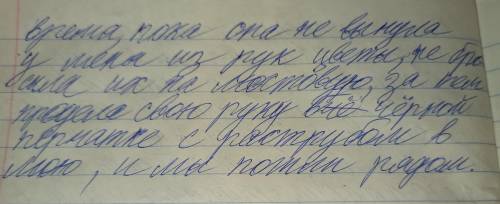 время, пока она не вынула
у меня из рук цветы, не бро
сила их на мостовую, за тем
продела свою руку в чёрной
перчатке с раструбом в
мою, и мы пошли рядом.